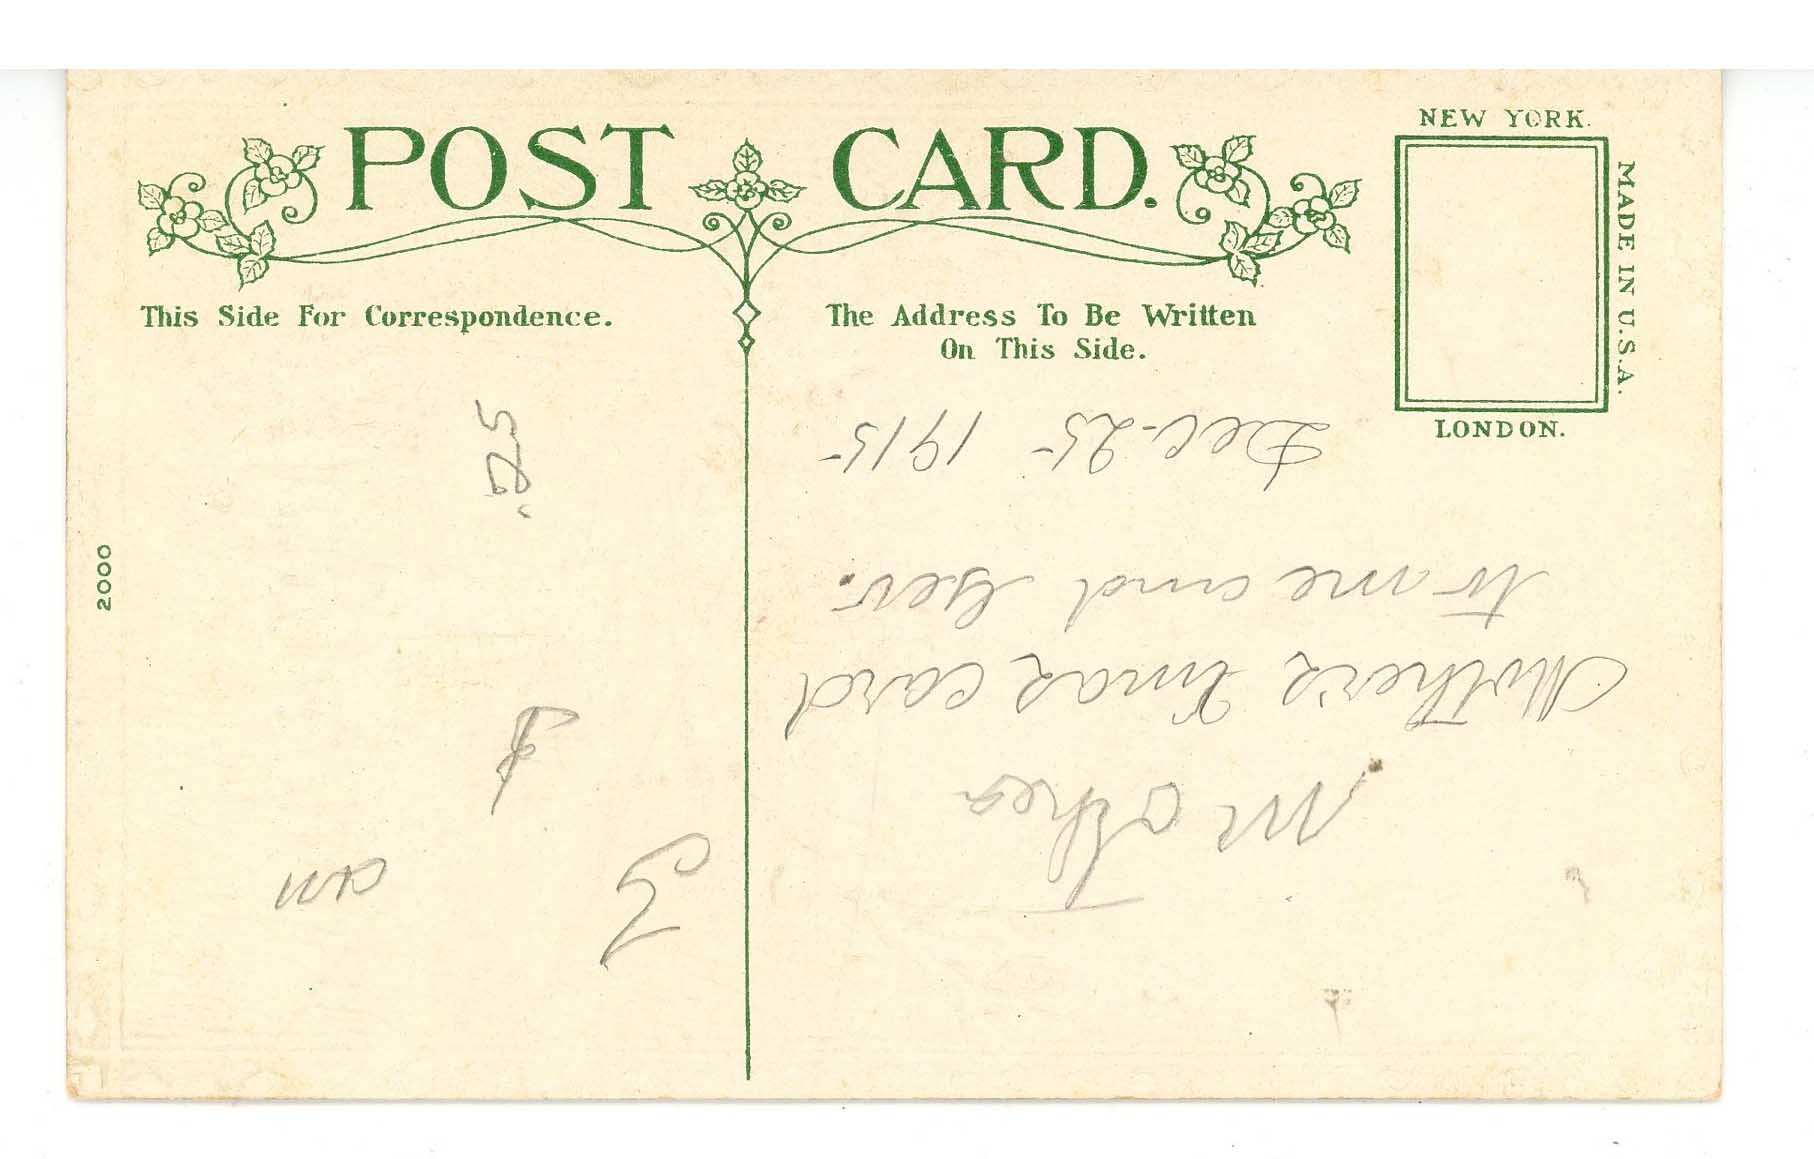 POST CARD.
NEW YORK.
MADE IN U.S.A.
LONDON.
This Side For Correspondence.
The Address To Be Written
On This Side.
2000
.25
3
Mother
Mother's Xmas card
to me and Gev.
Dec. 25 1915